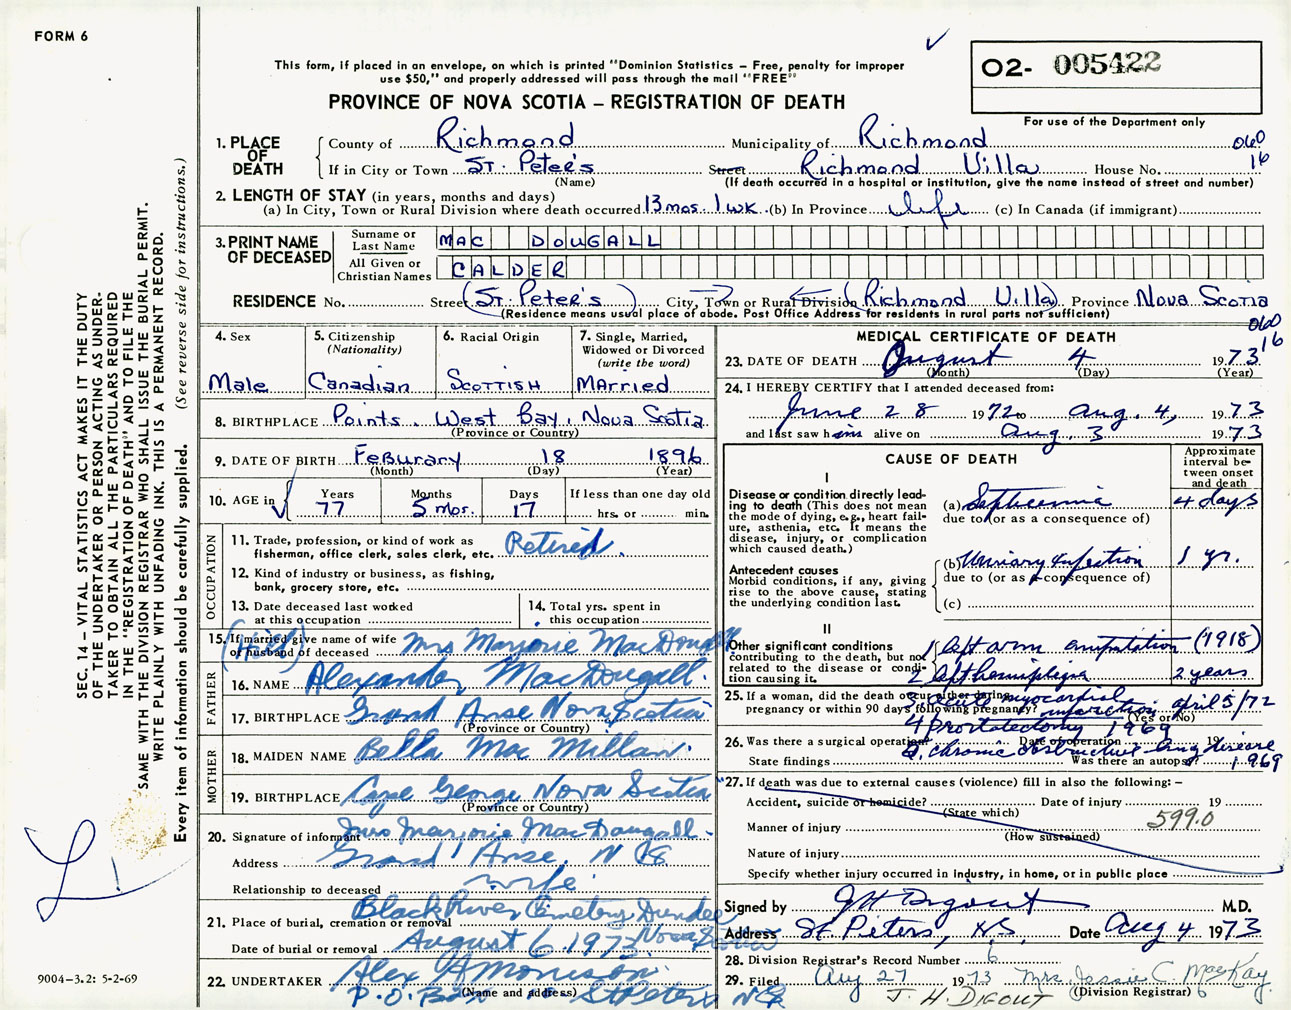 FORM 6
This form, if placed in an envelope, on which is printed "Dominion Statistics – Free, penalty for improper
use $50," and properly addressed will pass through the mail "FREE"
PROVINCE OF NOVA SCOTIA – REGISTRATION OF DEATH
O2- 005422
For use of the Department only
1. PLACE OF DEATH
County of Richmond Municipality of Richmond 060
If in City or Town St. Peter's Street Richmond Villa House No. 16
(Name) (If death occurred in a hospital or institution, give the name instead of street and number)
2. LENGTH OF STAY (in years, months and days)
(a) In City, Town or Rural Division where death occurred 13 mos. 1 wk. (b) In Province Life (c) In Canada (if immigrant)
3. PRINT NAME OF DECEASED
Surname or Last Name MAC DOUGALL
All Given or Christian Names CALDER
RESIDENCE No. Street (St. Peter's) City, Town or Rural Division (Richmond Villa) Province Nova Scotia
(Residence means usual place of abode. Post Office Address for residents in rural parts not sufficient)
060
16
4. Sex
Male
5. Citizenship
(Nationality)
Canadian
6. Racial Origin
Scottish
7. Single, Married,
Widowed or Divorced
(write the word)
Married
8. BIRTHPLACE Points, West Bay, Nova Scotia
(Province or Country)
9. DATE OF BIRTH Feburary 18 1896
(Month) (Day) (Year)
10. AGE in
Years 77
Months 5 mos.
Days 17
If less than one day old
hrs. or min.
OCCUPATION
11. Trade, profession, or kind of work as
fisherman, office clerk, sales clerk, etc. Retired.
12. Kind of industry or business, as fishing,
bank, grocery store, etc.
13. Date deceased last worked
at this occupation
14. Total yrs. spent in
this occupation
15. If married give name of wife
or husband of deceased Mrs Marjorie MacDougall
(Hill)
FATHER
16. NAME Alexander MacDougall.
17. BIRTHPLACE Grand Anse Nova Scotia
(Province or Country)
MOTHER
18. MAIDEN NAME Bella Mac Millan.
19. BIRTHPLACE Cape George Nova Scotia
(Province or Country)
20. Signature of informant Mrs Marjorie MacDougall.
Address Grand Anse, NS
Relationship to deceased wife
21. Place of burial, cremation or removal Black River Cemetery Dundee
Nova Scotia
Date of burial or removal August 6 1973
22. UNDERTAKER Alex A Morrison
(Name and address)
P.O. Box St Peters NS
MEDICAL CERTIFICATE OF DEATH
23. DATE OF DEATH August 4 1973
(Month) (Day) (Year)
24. I HEREBY CERTIFY that I attended deceased from:
June 28 1972 to Aug. 4, 1973
and last saw him alive on Aug. 3 1973
CAUSE OF DEATH
Approximate interval between onset and death
I
Disease or condition directly leading to death (This does not mean the mode of dying, e.g., heart failure, asthenia, etc. It means the disease, injury, or complication which caused death.)
(a) Septicemia 4 days
due to (or as a consequence of)
Antecedent causes
Morbid conditions, if any, giving rise to the above cause, stating the underlying condition last.
(b) Urinary infection 1 yr.
due to (or as a consequence of)
(c)
II
Other significant conditions
contributing to the death, but not related to the disease or condition causing it.
1 left arm amputation (1918)
2 left hemiplegia 2 years
3 acute myocardial infarction april 5/72
4 Prostatectomy 1969
5. chronic obstructive lung disease 1969
25. If a woman, did the death occur either during
pregnancy or within 90 days following pregnancy? (Yes or No)
26. Was there a surgical operation Date of operation 19
State findings Was there an autopsy
27. If death was due to external causes (violence) fill in also the following: –
Accident, suicide or homicide? Date of injury 19
(State which)
Manner of injury 599.0
(How sustained)
Nature of injury
Specify whether injury occurred in industry, in home, or in public place
Signed by J H Digout M.D.
Address St. Peters, N.S. Date Aug 4 1973
28. Division Registrar's Record Number 6
29. Filed Aug 27 1973 Mrs. Jessie C. MacKay
(Division Registrar) 6
J. H. DIGOUT
SEC. 14 – VITAL STATISTICS ACT MAKES IT THE DUTY
OF THE UNDERTAKER OR PERSON ACTING AS UNDER-
TAKER TO OBTAIN ALL THE PARTICULARS REQUIRED
IN THE "REGISTRATION OF DEATH" AND TO FILE THE
SAME WITH THE DIVISION REGISTRAR WHO SHALL ISSUE THE BURIAL PERMIT.
WRITE PLAINLY WITH UNFADING INK. THIS IS A PERMANENT RECORD.
Every item of information should be carefully supplied. (See reverse side for instructions.)
9004–3.2: 5-2-69